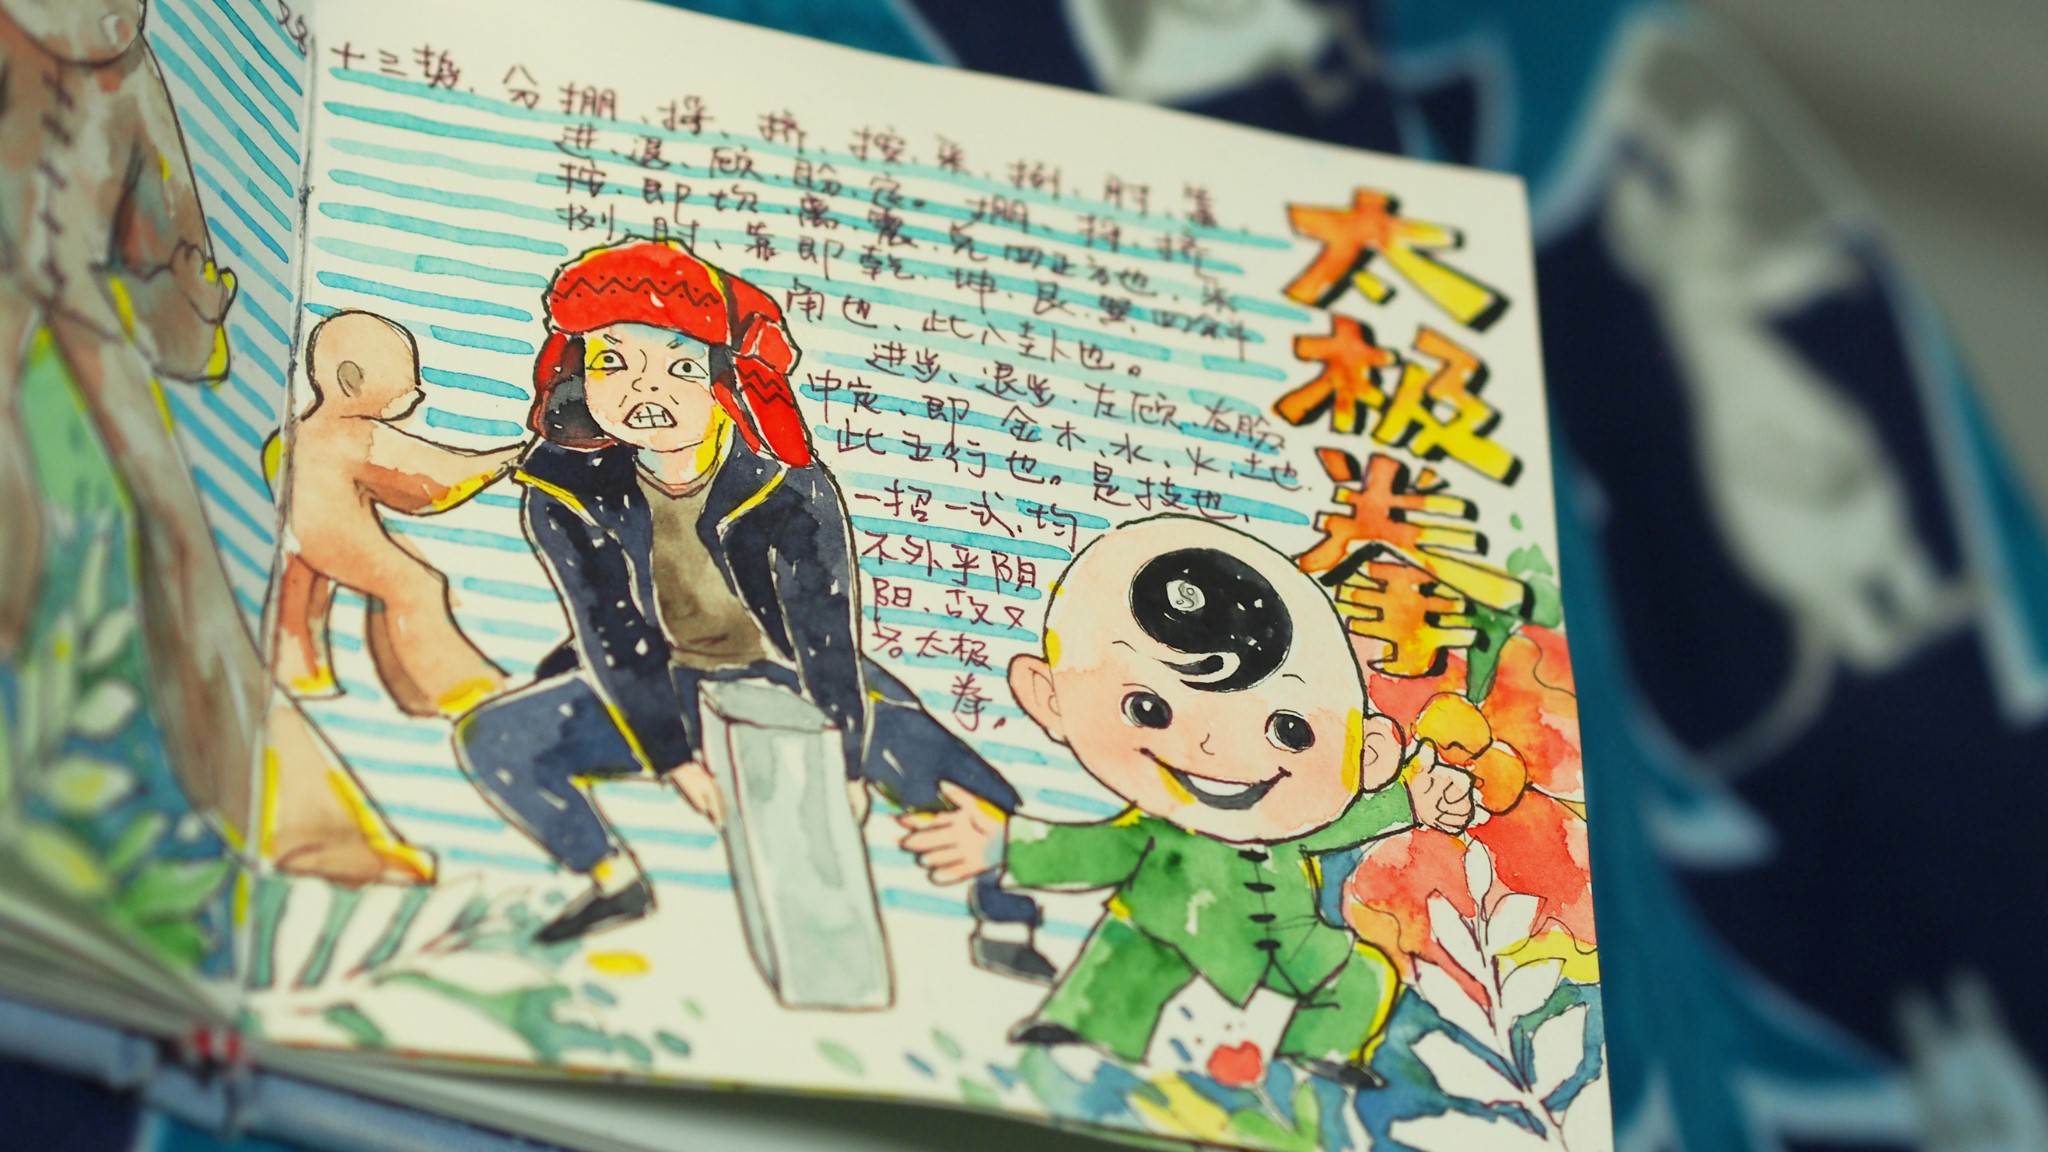 太极拳
十三势、分掤、捋、挤、按、采、挒、肘、靠、
进、退、顾、盼、定。掤、捋、挤、
按、即坎、离、震、兑四正方也、采
挒、肘、靠即乾、坤、艮、巽、四斜
角也、此八卦也。
进步、退步、左顾、右盼
中定、即金、木、水、火、土也.
此五行也。是技也、
一招一式、均
不外乎阴
阳、故又
名太极
拳。